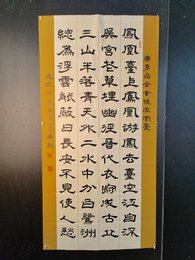 唐李白登金陵鳳凰臺
鳳凰臺上鳳凰游鳳去臺空江自流
吳宮花草埋幽徑晉代衣冠成古丘
三山半落青天外二水中分白鷺洲
總為浮雲能蔽日長安不見使人愁